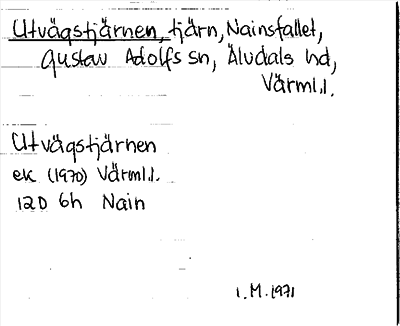 Utvägstjärnen, tjärn, Nainsfallet,
Gustav Adolfs sn, Älvdals hd,
Värml.l.
Utvägstjärnen
ek (1970) Värml.l.
12D 6h Nain
I.M.1971